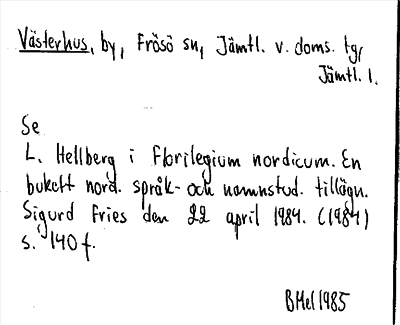 Västerhus, by, Frösö sn, Jämtl. v. doms. tg,
Jämtl. l.
Se
L. Hellberg i Florilegium nordicum. En
bukett nord. språk- och namnstud. tillägn.
Sigurd Fries den 22 april 1984. (1984)
s. 140 f.
BMel 1985